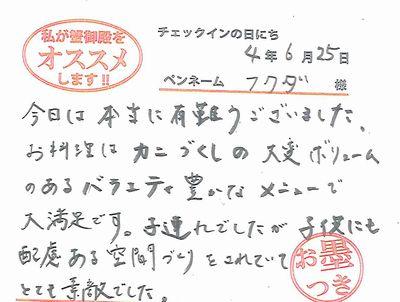 私が蟹御殿を
オススメ
します!!
チェックインの日にち
4年6月25日
ペンネーム フクダ 様
今日は本当に有難うございました。
お料理はカニづくしの大変ボリューム
のあるバラエティ豊かなメニューで
大満足です。子連れでしたが子供にも
配慮ある空間づくりをされていて
とても素敵でした。
お墨
つき